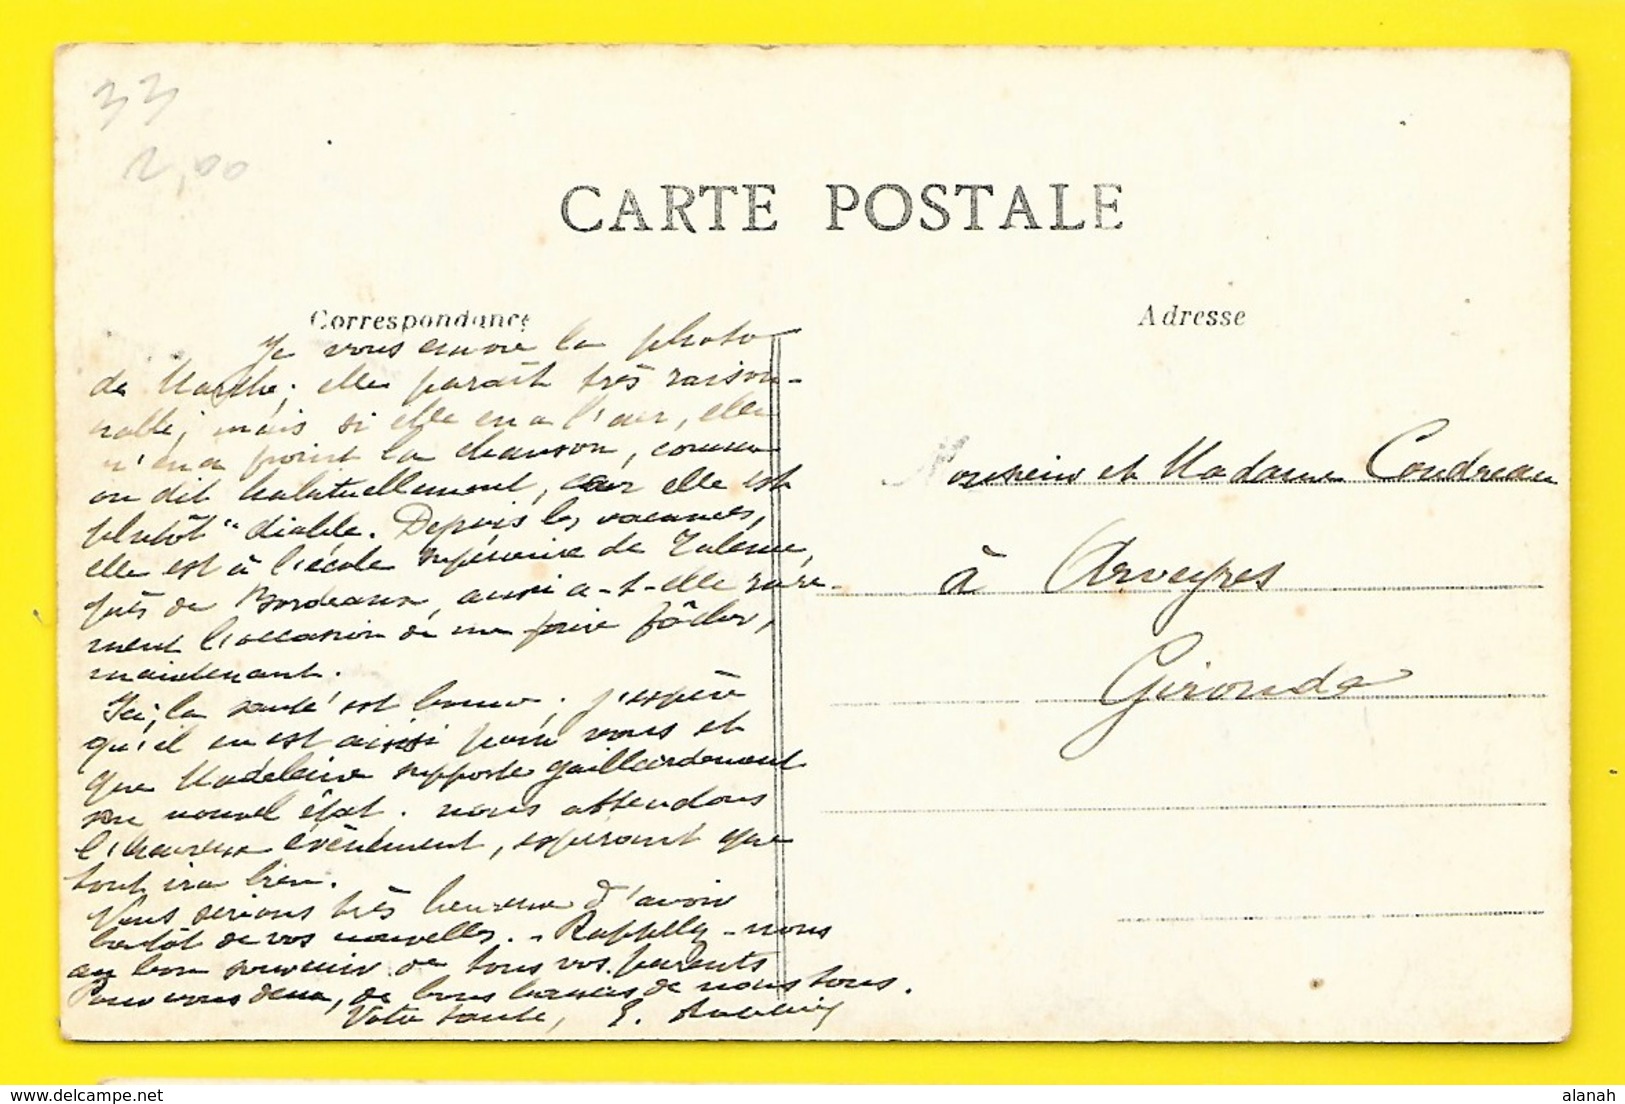 33
2,00
CARTE POSTALE
Correspondance
Adresse
Je vous envoie la photo
de Marthe; elle paraît très raison-
nable; mais si elle en a l'air, elle
n'en a point la chanson, comme
on dit habituellement, car elle est
plutôt "diable. Depuis les vacances,
elle est à l'école supérieure de Talence,
près de Bordeaux, aussi a-t-elle rare-
ment l'occasion de me faire fâcher,
maintenant.
Ici, la santé est bonne; j'espère
qu'il en est ainsi pour vous et
que Madeleine supporte gaillardement
son nouvel état. nous attendons
l'heureux évènement, espérant que
tout ira bien.
Nous serions très heureux d'avoir
bientôt de vos nouvelles. - Rappelez-nous
au bon souvenir de tous vos parents
Pour vous deux, de bons baisers de nous tous.
Votre tante, E.
Monsieur et Madame Coudreau
à Arveyres
Gironde
https://www.delcampe.net
alanah